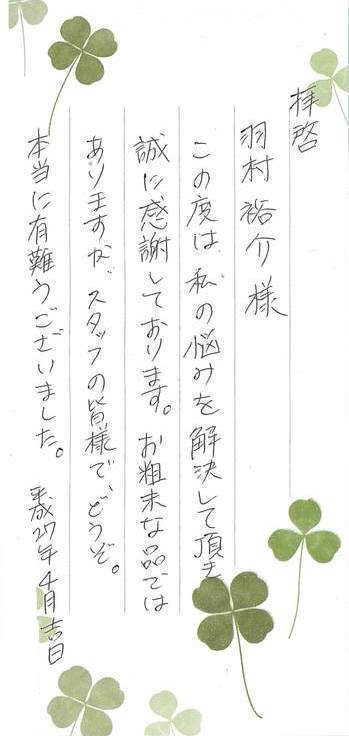 拝啓
羽村裕介様
この度は私の悩みを解決して頂き
誠に感謝しております。お粗末な品では
ありますが、スタッフの皆様で、どうぞ。
本当に有難うございました。 平成27年4月吉日